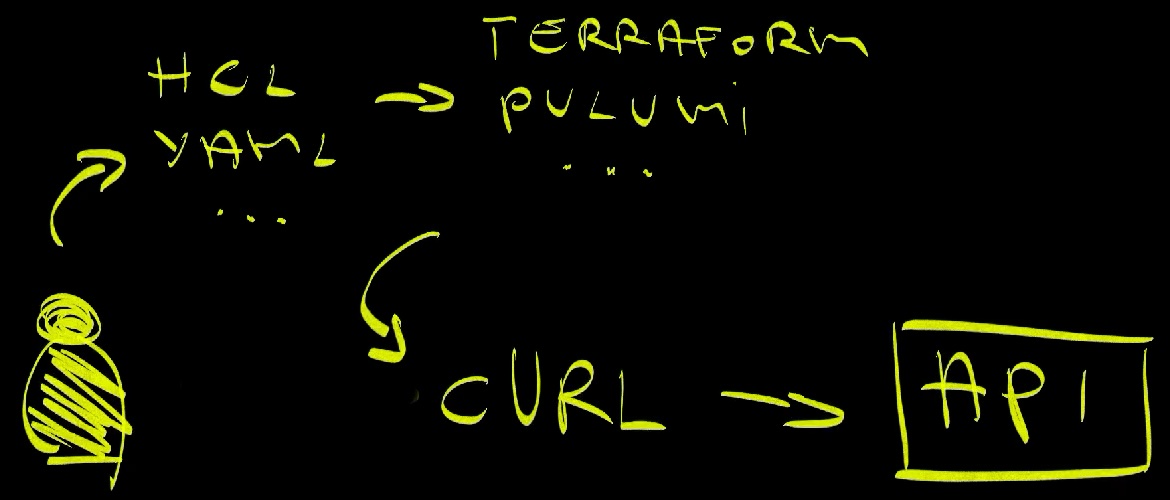 HCL
YAML
...
TERRAFORM
PULUMI
...
CURL
API